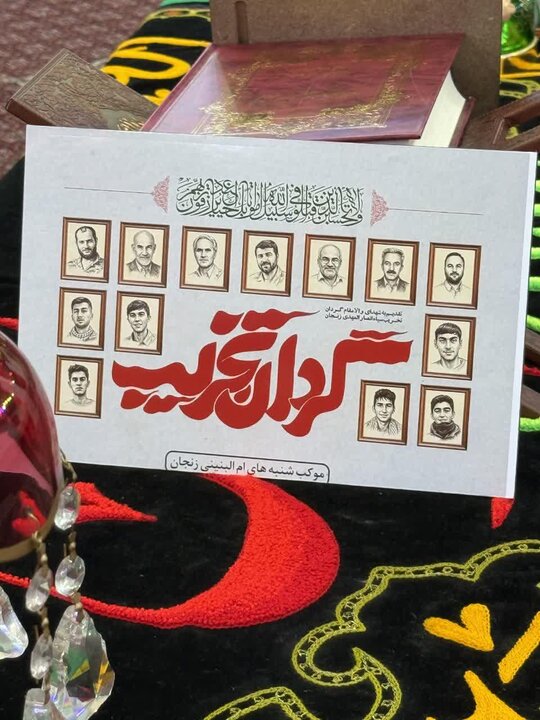 ولا تحسبن الذین قتلوا فی سبیل الله امواتا بل احیاء عند ربهم یرزقون
تقدیم به شهدای والامقام گردان
تخریب سپاه انصارالمهدی زنجان
گردان تخریب
موکب شنبه های ام البنینی زنجان